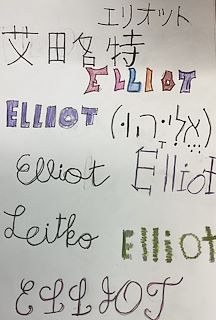 エリオット
艾略特
ELLIOT
ELLIOT
(אֱלִיָּהוּ)
Elliot
Elliot
Leitko
Elliot
ELLIOT